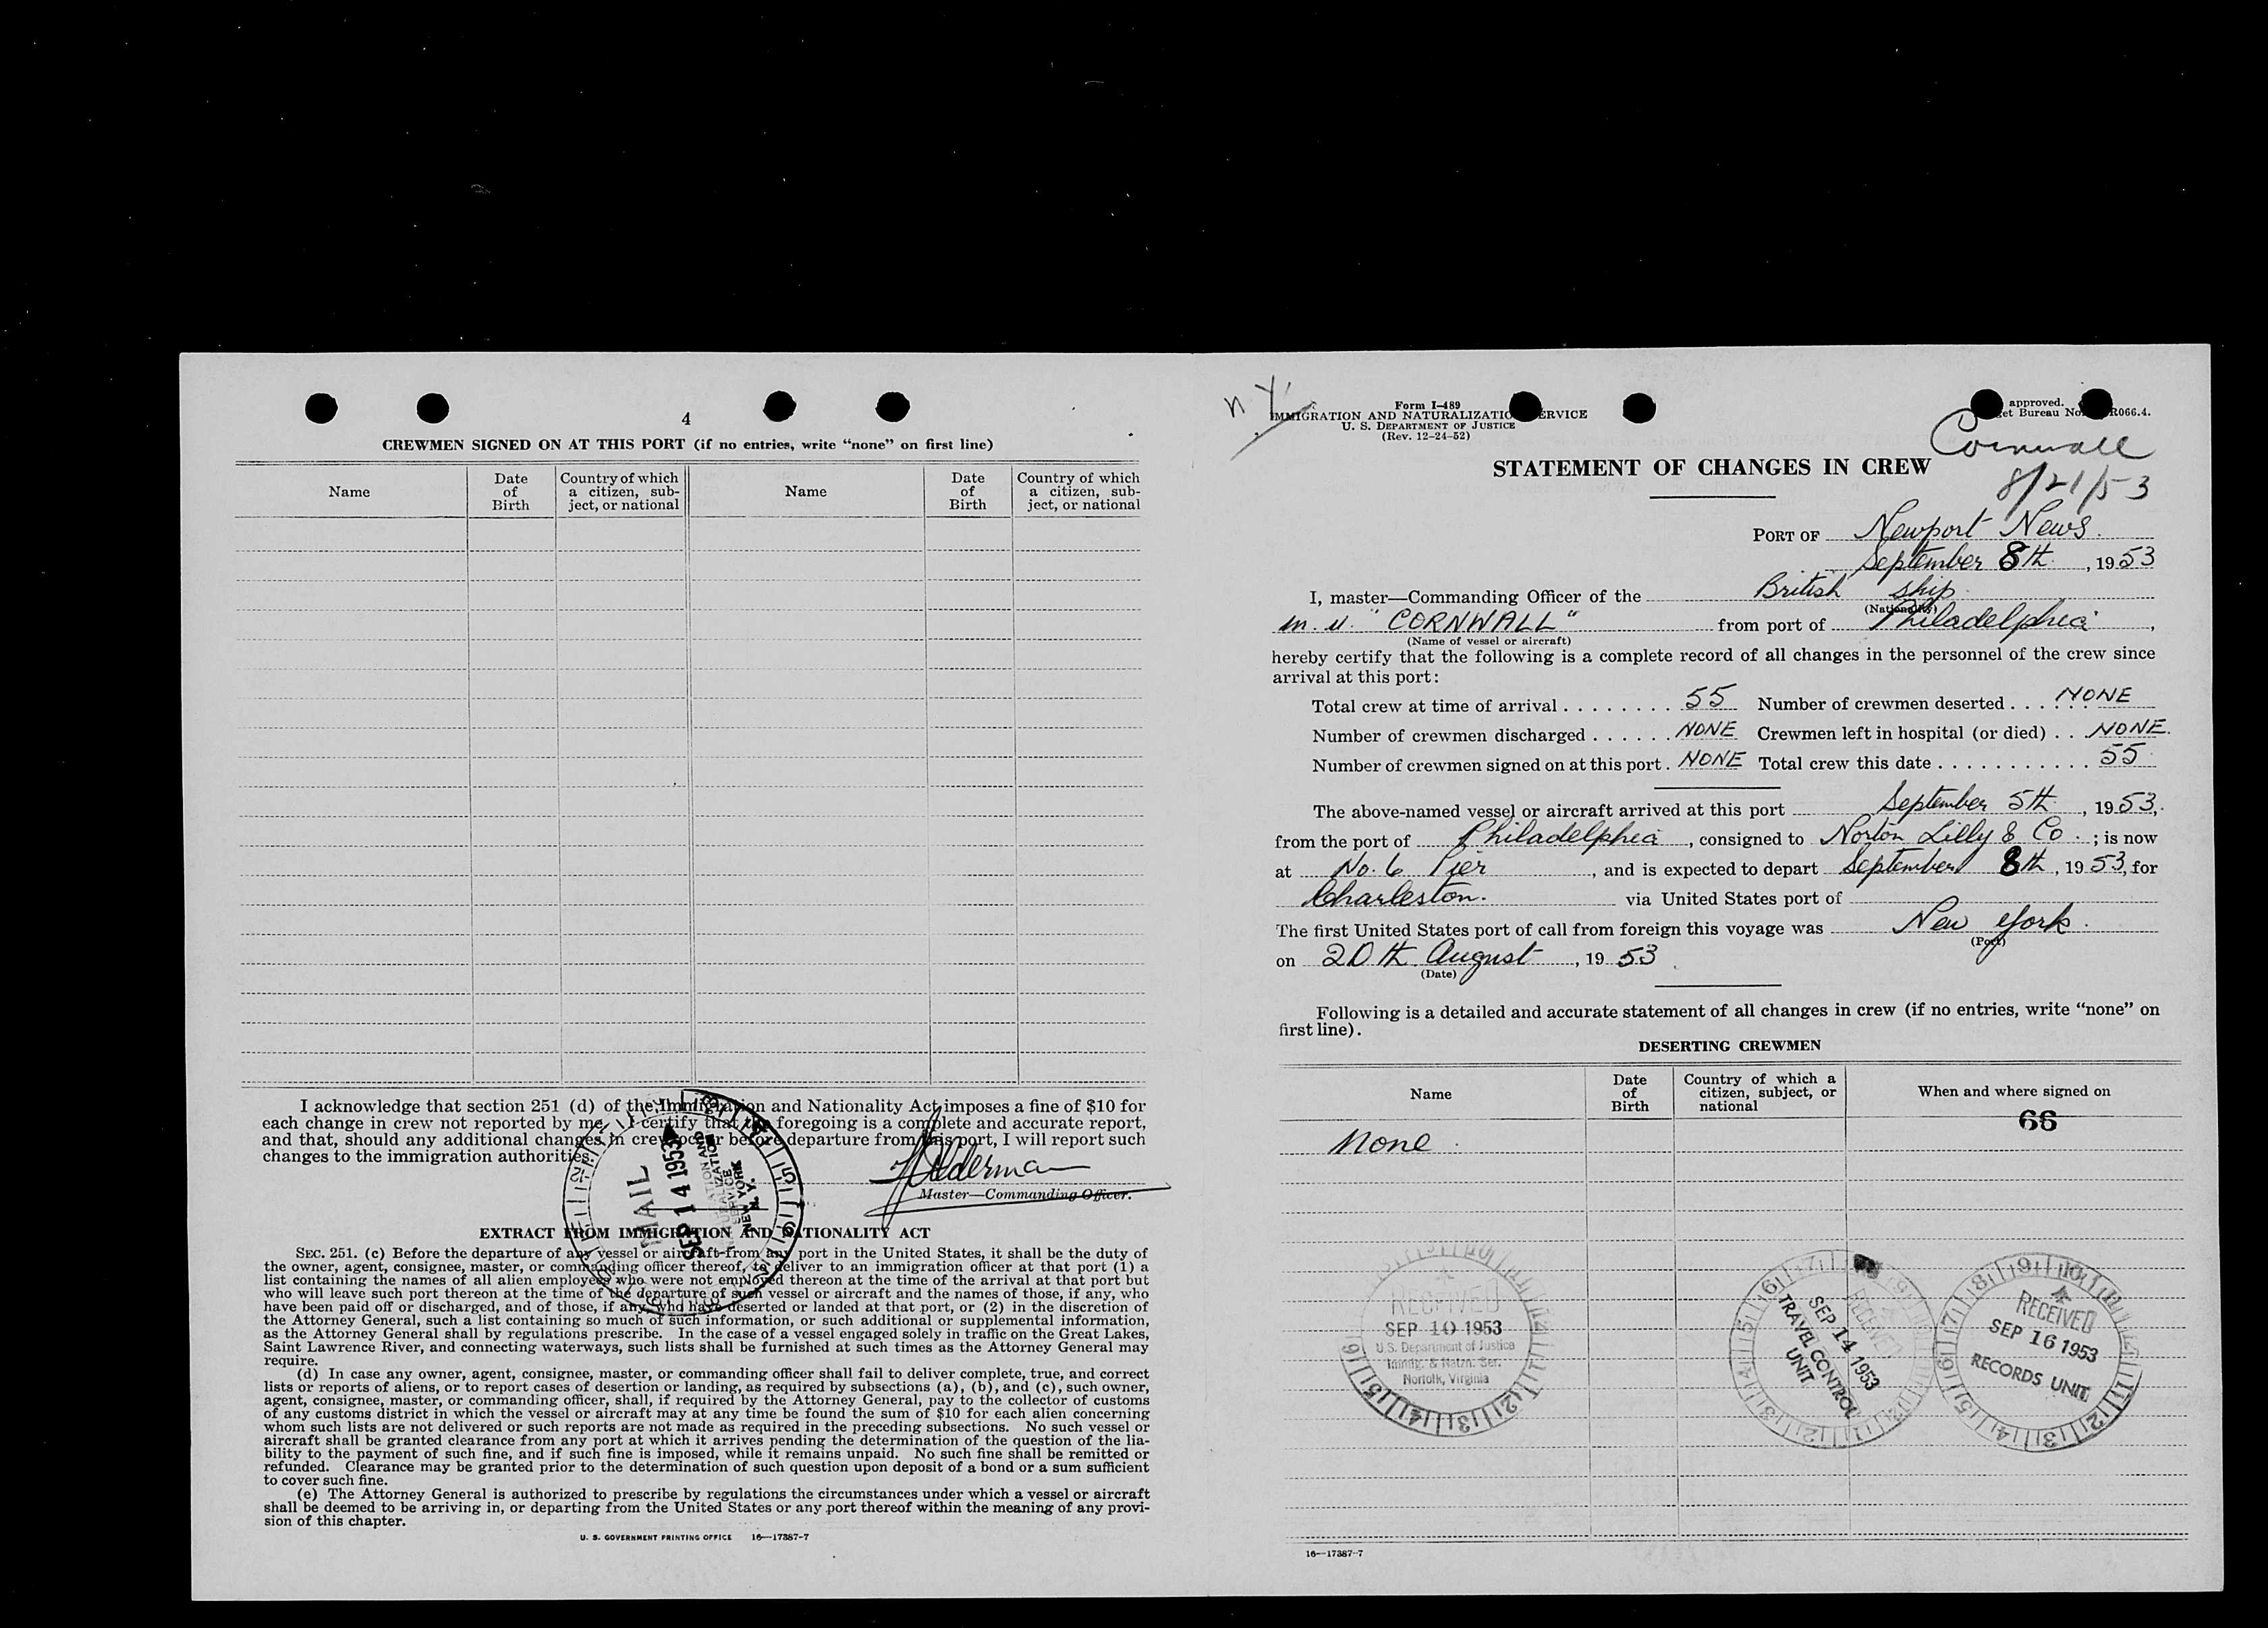 4
CREWMEN SIGNED ON AT THIS PORT (if no entries, write “none” on first line)
Name
Date of Birth
Country of which a citizen, sub-ject, or national
Name
Date of Birth
Country of which a citizen, sub-ject, or national
I acknowledge that section 251 (d) of the Immigration and Nationality Act imposes a fine of $10 for
each change in crew not reported by me. I certify that the foregoing is a complete and accurate report,
and that, should any additional changes in crew occur before departure from this port, I will report such
changes to the immigration authorities.
Master—Commanding Officer.
MAIL
SEP 14 1953
NEW YORK
N. Y.
EXTRACT FROM IMMIGRATION AND NATIONALITY ACT
SEC. 251. (c) Before the departure of any vessel or aircraft from any port in the United States, it shall be the duty of
the owner, agent, consignee, master, or commanding officer thereof, to deliver to an immigration officer at that port (1) a
list containing the names of all alien employees who were not employed thereon at the time of the arrival at that port but
who will leave such port thereon at the time of the departure of such vessel or aircraft and the names of those, if any, who
have been paid off or discharged, and of those, if any, who have deserted or landed at that port, or (2) in the discretion of
the Attorney General, such a list containing so much of such information, or such additional or supplemental information,
as the Attorney General shall by regulations prescribe. In the case of a vessel engaged solely in traffic on the Great Lakes,
Saint Lawrence River, and connecting waterways, such lists shall be furnished at such times as the Attorney General may
require.
(d) In case any owner, agent, consignee, master, or commanding officer shall fail to deliver complete, true, and correct
lists or reports of aliens, or to report cases of desertion or landing, as required by subsections (a), (b), and (c), such owner,
agent, consignee, master, or commanding officer, shall, if required by the Attorney General, pay to the collector of customs
of any customs district in which the vessel or aircraft may at any time be found the sum of $10 for each alien concerning
whom such lists are not delivered or such reports are not made as required in the preceding subsections. No such vessel or
aircraft shall be granted clearance from any port at which it arrives pending the determination of the question of the lia-
bility to the payment of such fine, and if such fine is imposed, while it remains unpaid. No such fine shall be remitted or
refunded. Clearance may be granted prior to the determination of such question upon deposit of a bond or a sum sufficient
to cover such fine.
(e) The Attorney General is authorized to prescribe by regulations the circumstances under which a vessel or aircraft
shall be deemed to be arriving in, or departing from the United States or any port thereof within the meaning of any provi-
sion of this chapter.
U. S. GOVERNMENT PRINTING OFFICE 16—17387-7
N Y
Form I-489
IMMIGRATION AND NATURALIZATIO ERVICE
U. S. DEPARTMENT OF JUSTICE
(Rev. 12-24-52)
approved.
et Bureau No. R066.4.
Cornwall
8/21/53
STATEMENT OF CHANGES IN CREW
PORT OF Newport News.
September 8th, 1953
I, master—Commanding Officer of the British ship
(Nationality)
m.v. "CORNWALL" from port of Philadelphia,
(Name of vessel or aircraft)
hereby certify that the following is a complete record of all changes in the personnel of the crew since
arrival at this port:
Total crew at time of arrival . . . . . . . . 55 Number of crewmen deserted . . . . NONE
Number of crewmen discharged . . . . . . NONE Crewmen left in hospital (or died) . . NONE.
Number of crewmen signed on at this port . NONE Total crew this date . . . . . . . . . . . 55
The above-named vessel or aircraft arrived at this port September 5th, 1953,
from the port of Philadelphia, consigned to Norton Lilly & Co.; is now
at No. 6 Pier, and is expected to depart September 8th, 1953, for
Charleston. via United States port of
The first United States port of call from foreign this voyage was New York.
(Port)
on 20th August, 1953.
(Date)
Following is a detailed and accurate statement of all changes in crew (if no entries, write “none” on
first line).
DESERTING CREWMEN
Name
Date of Birth
Country of which a citizen, subject, or national
When and where signed on
66
None.
RECEIVED
SEP 10 1953
U.S. Department of Justice
Immig. & Natzn. Ser.
Norfolk, Virginia
RECEIVED
SEP 14 1953
TRAVEL CONTROL
UNIT
RECEIVED
SEP 16 1953
RECORDS UNIT
16—17387-7